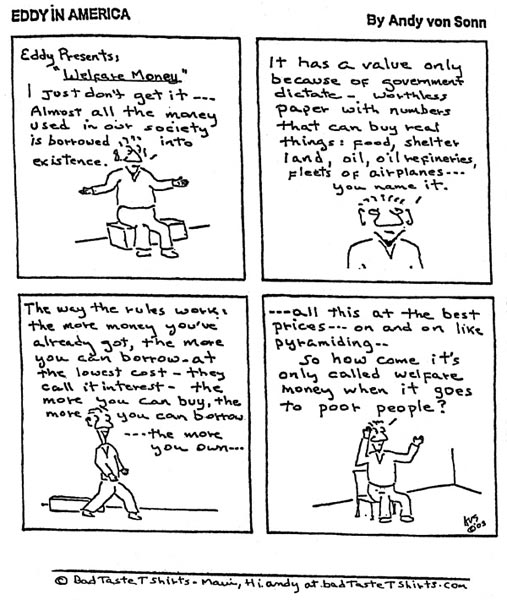 EDDY IN AMERICA
By Andy von Sonn
Eddy Presents:
"Welfare Money"
I just don't get it ---
Almost all the money
used in our society
is borrowed into
existence.
It has a value only
because of government
dictate - worthless
paper with numbers
that can buy real
things: food, shelter
land, oil, oil refineries,
fleets of airplanes---
you name it.
The way the rules work:
the more money you've
already got, the more
you can borrow-at
the lowest cost - they
call it interest - the
more you can buy, the
more you can borrow
---the more
you own---
---all this at the best
prices--- on and on like
pyramiding--
So how come it's
only called welfare
money when it goes
to poor people?
AVS
©'03
© BadTasteTShirts - Maui, Hi. andy at badTasteTShirts.com